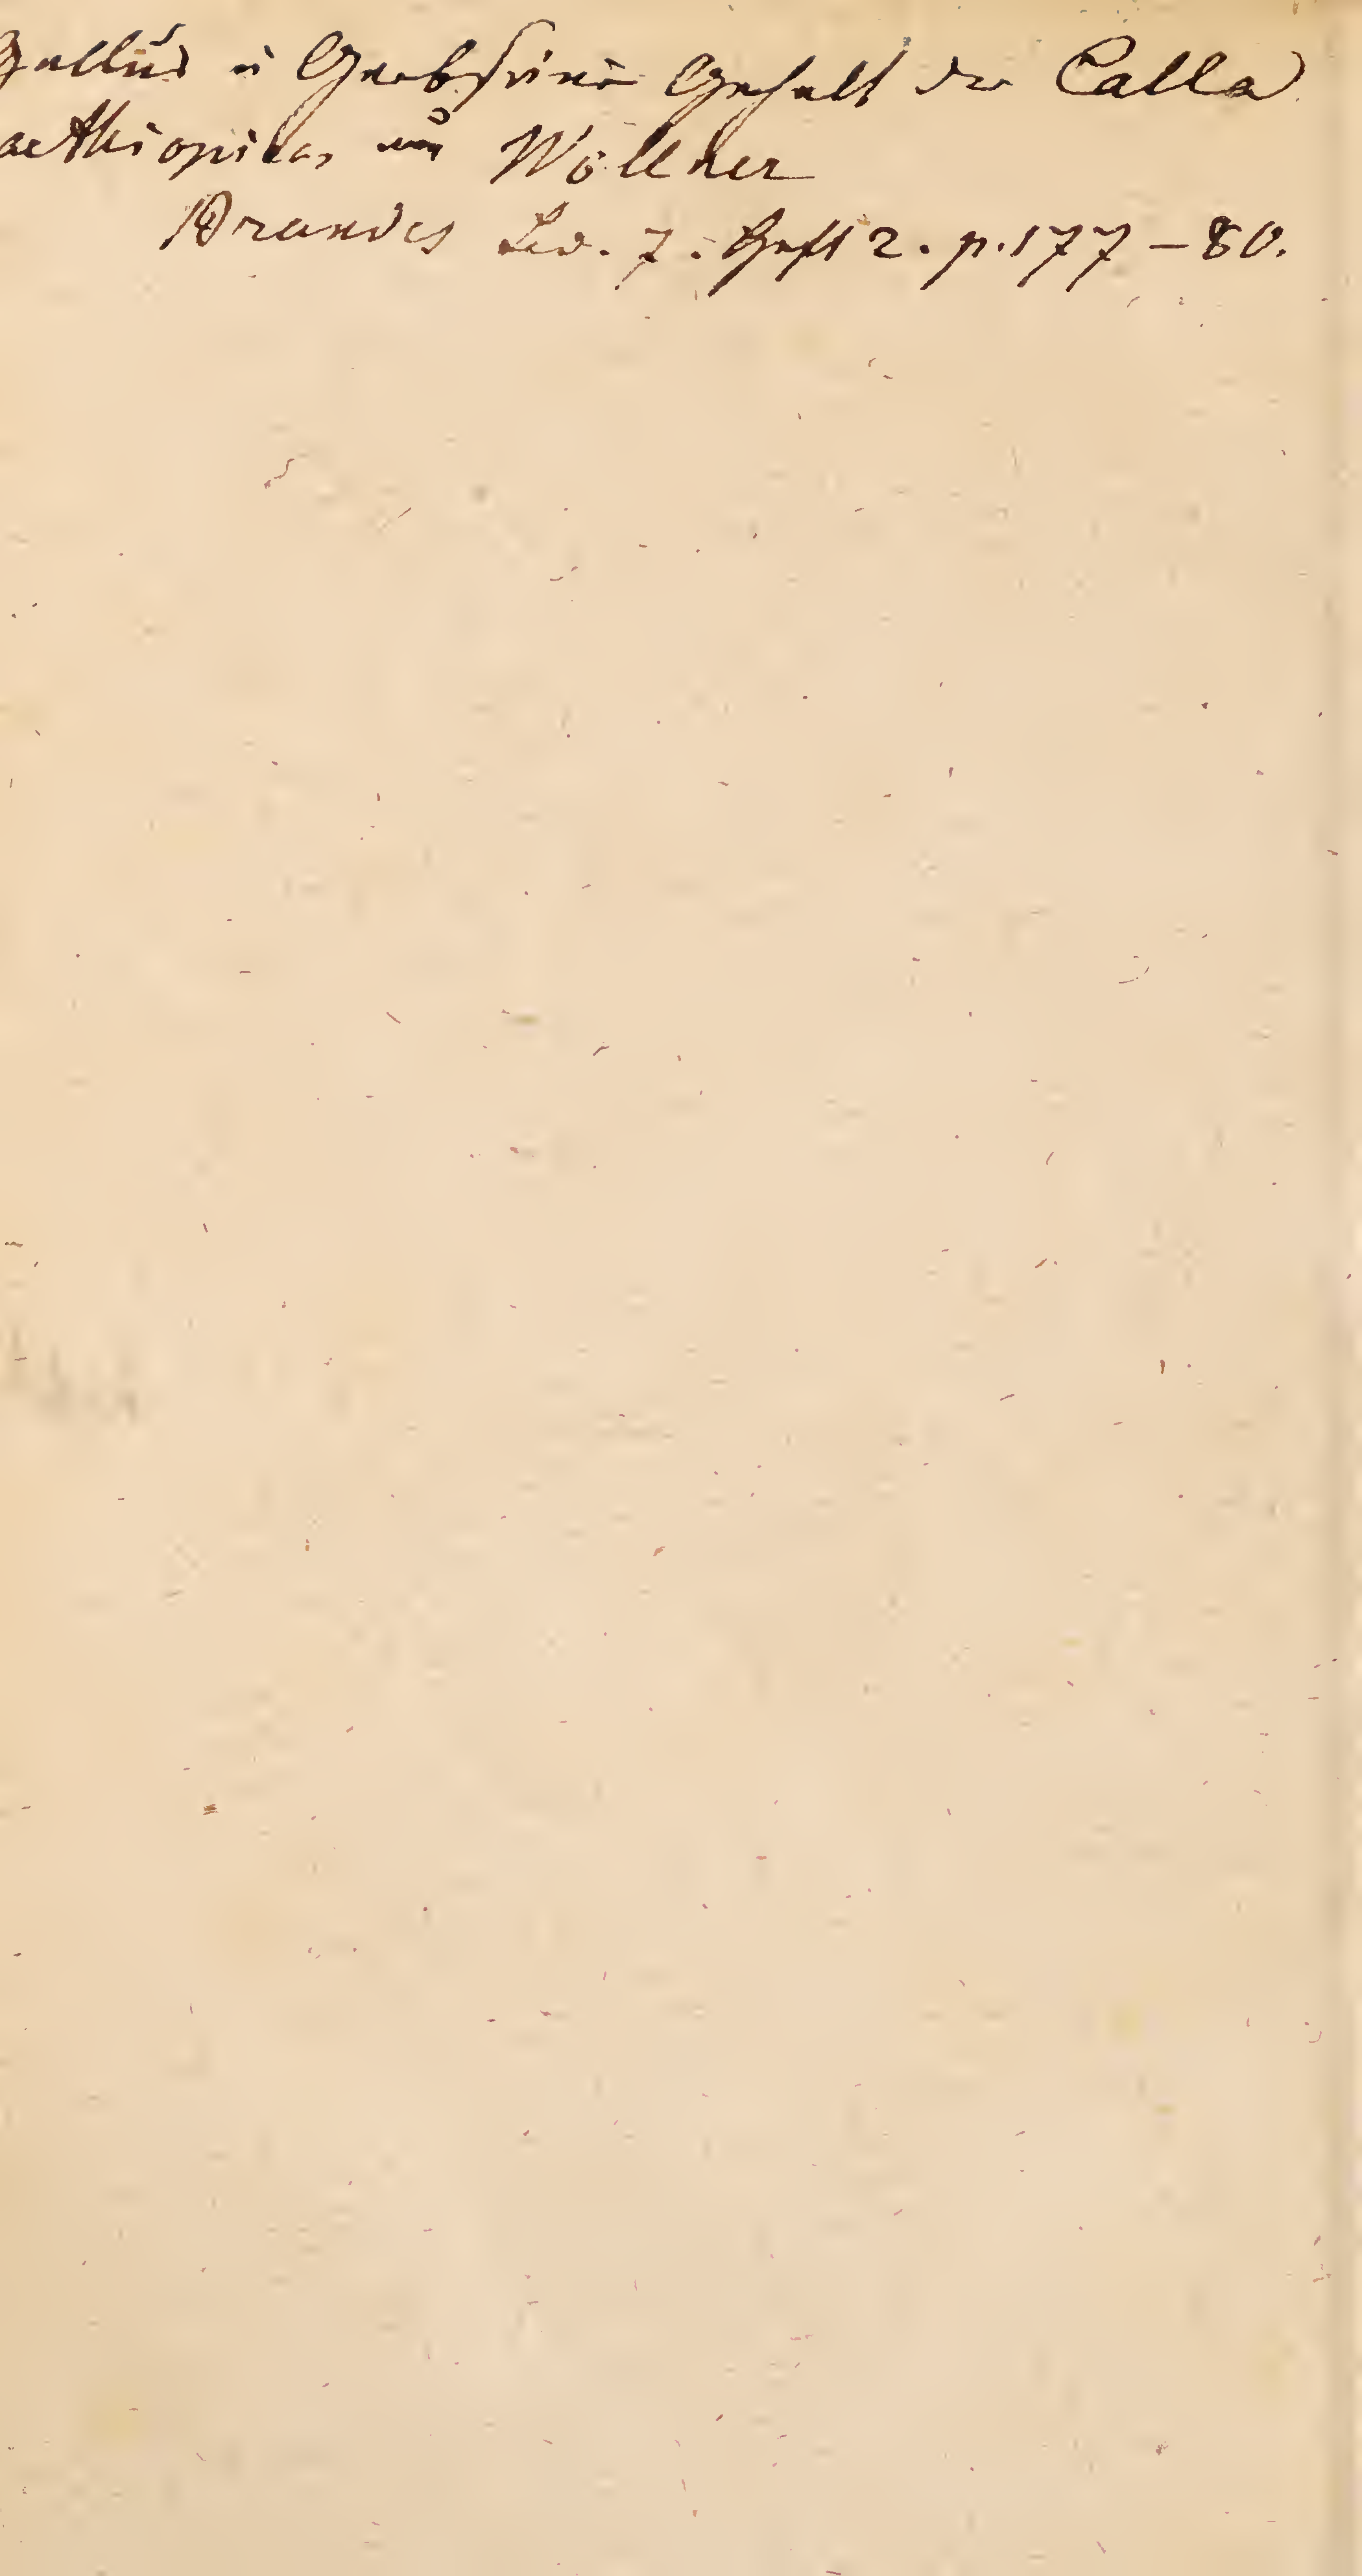 Gallus u Gerbsäure Gehalt der Calla
aethiopica, von Wöllner
Brandes Bd. 7. Heft 2. p. 177 – 80.